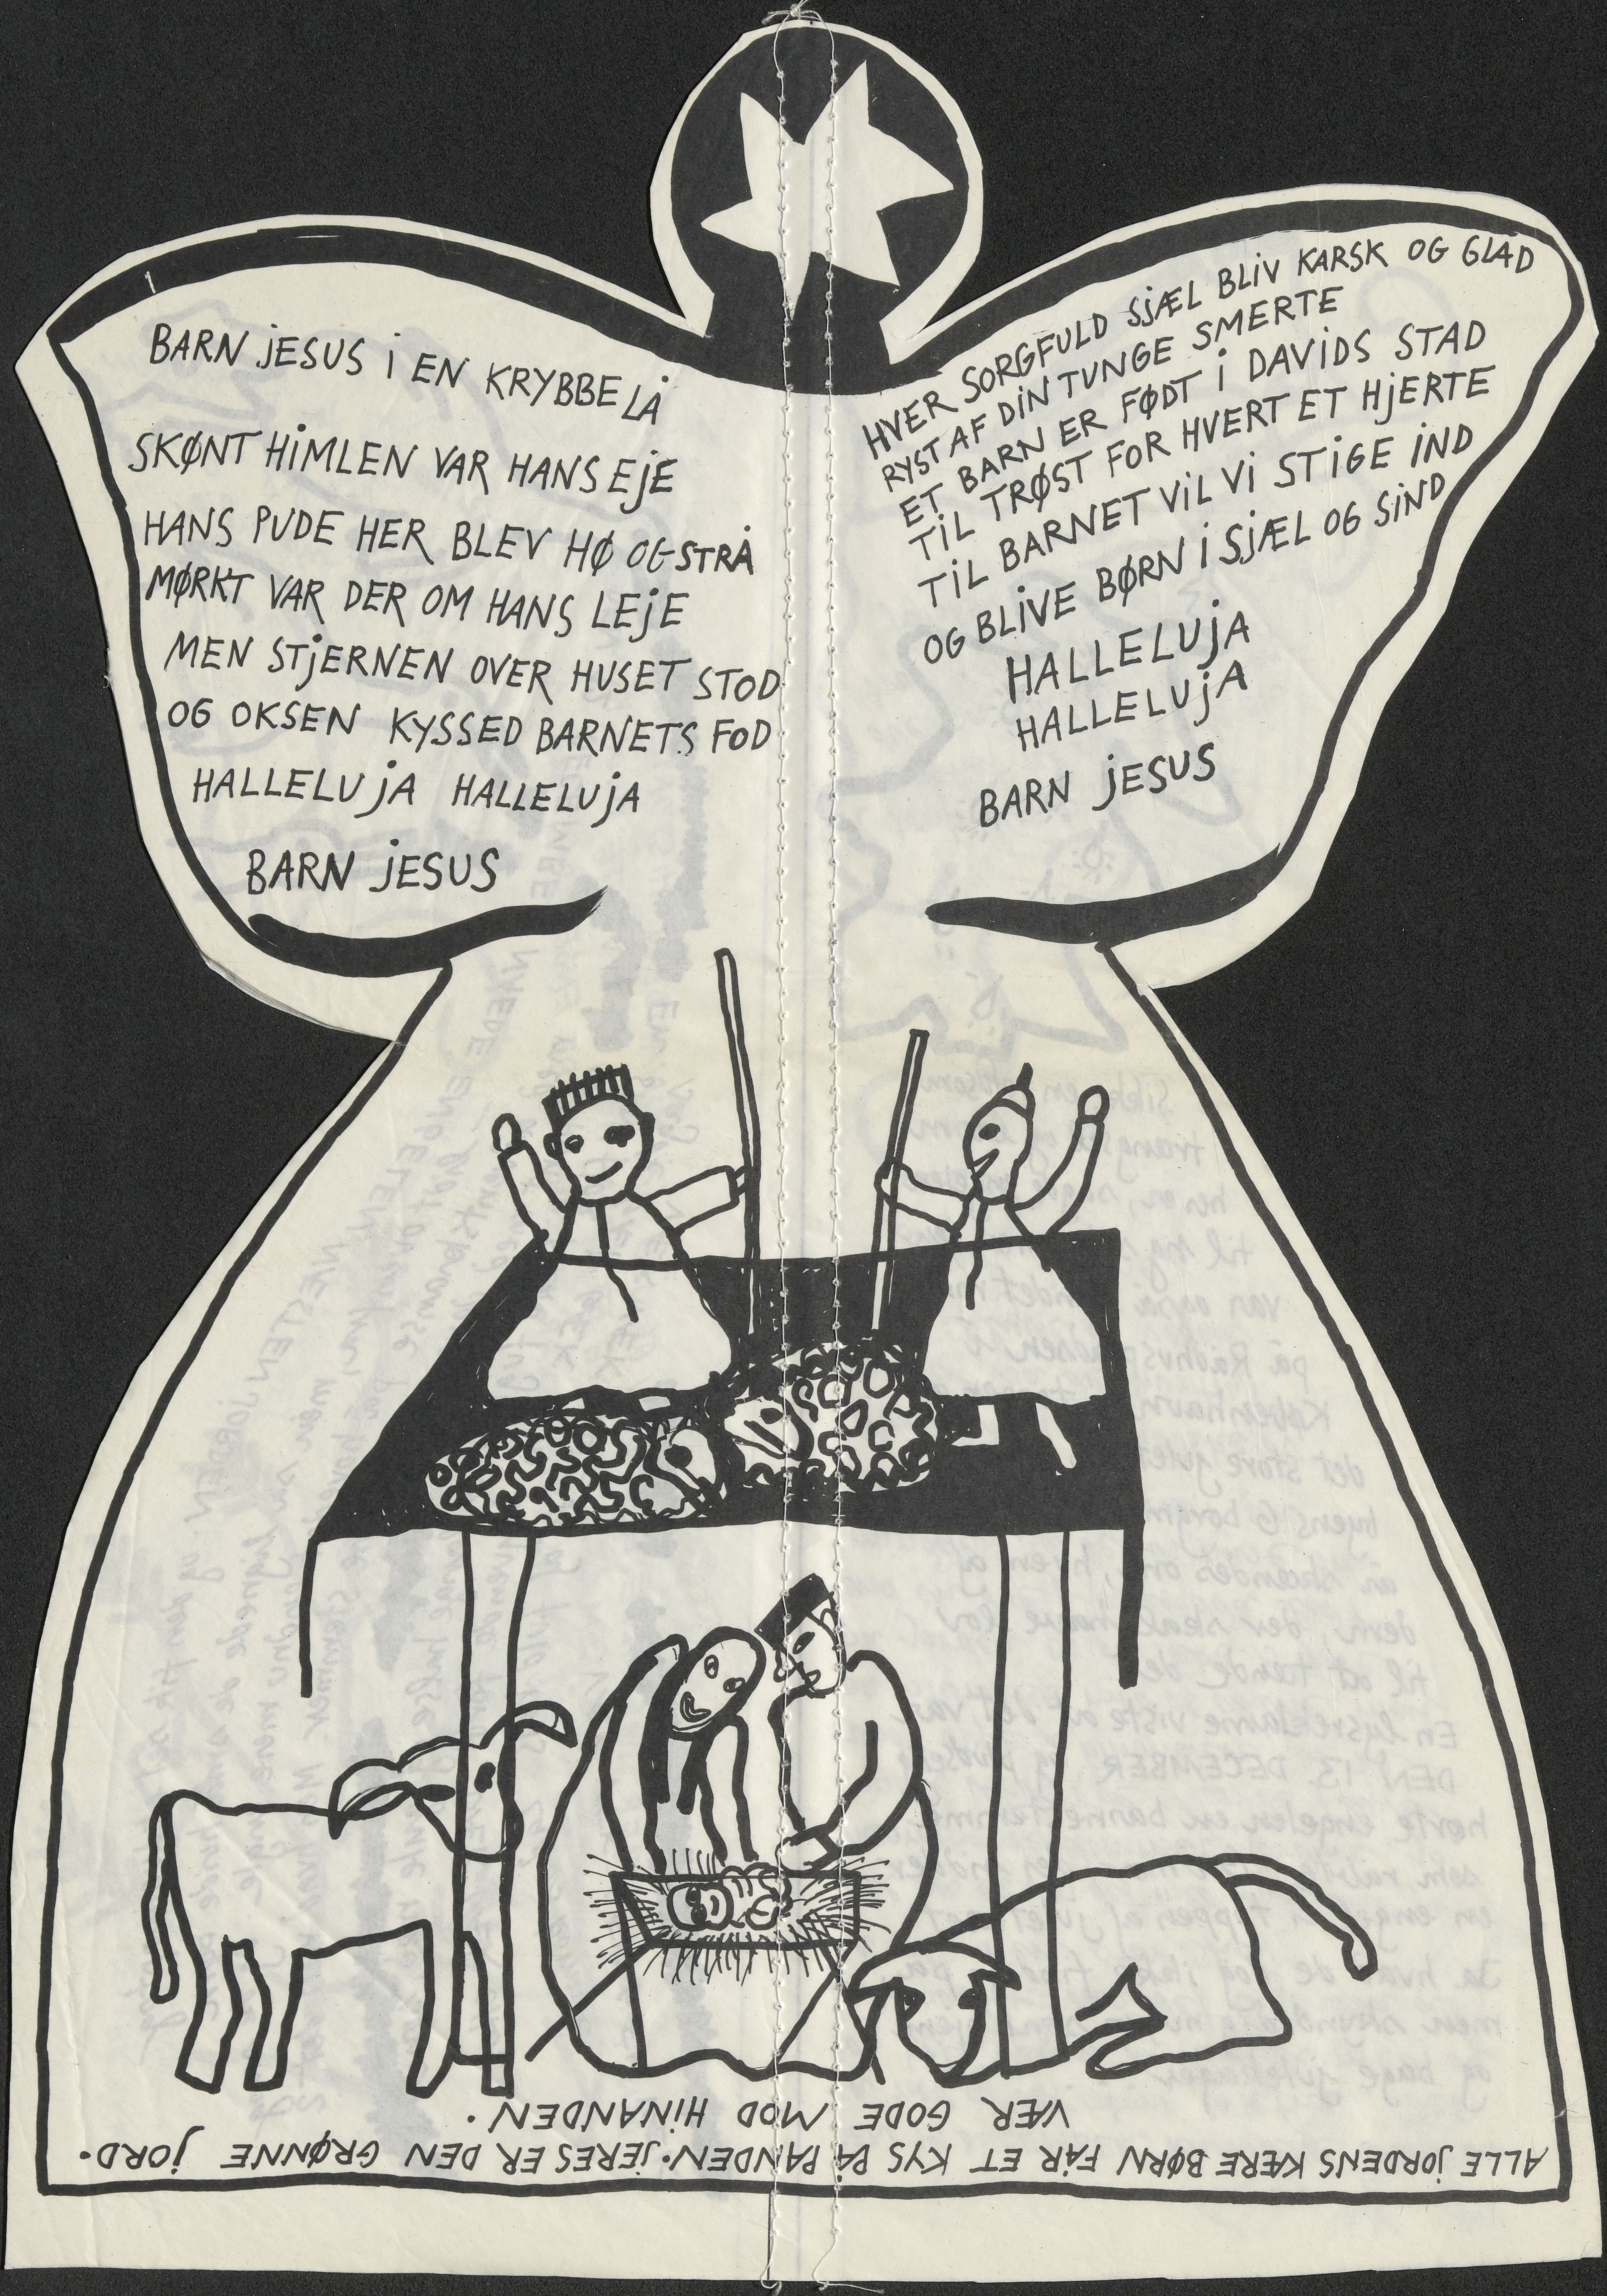 BARN jESUS i EN KRYBBE LÅ
SKØNT HiMLEN VAR HANS EjE
HANS PUDE HER BLEV HØ OG STRÅ
MØRKT VAR DER OM HANS LEjE
MEN STjERNEN OVER HUSET STOD
OG OKSEN KYSSED BARNETS FOD
HALLELUjA HALLELUjA
BARN jESUS
HVER SORGFULD SjÆL BLiV KARSK OG GLAD
RYST AF DiN TUNGE SMERTE
ET BARN ER FØDT i DAViDS STAD
TiL TRØST FOR HVERT ET HjERTE
TiL BARNET ViL Vi STiGE iND
OG BLiVE BØRN i SjÆL OG SiND
HALLELUjA
HALLELUjA
BARN jESUS
ALLE jORDENS KÆRE BØRN FÅR ET KYS PÅ PANDEN. jERES ER DEN GRØNNE jORD.
VÆR GODE MOD HiNANDEN.